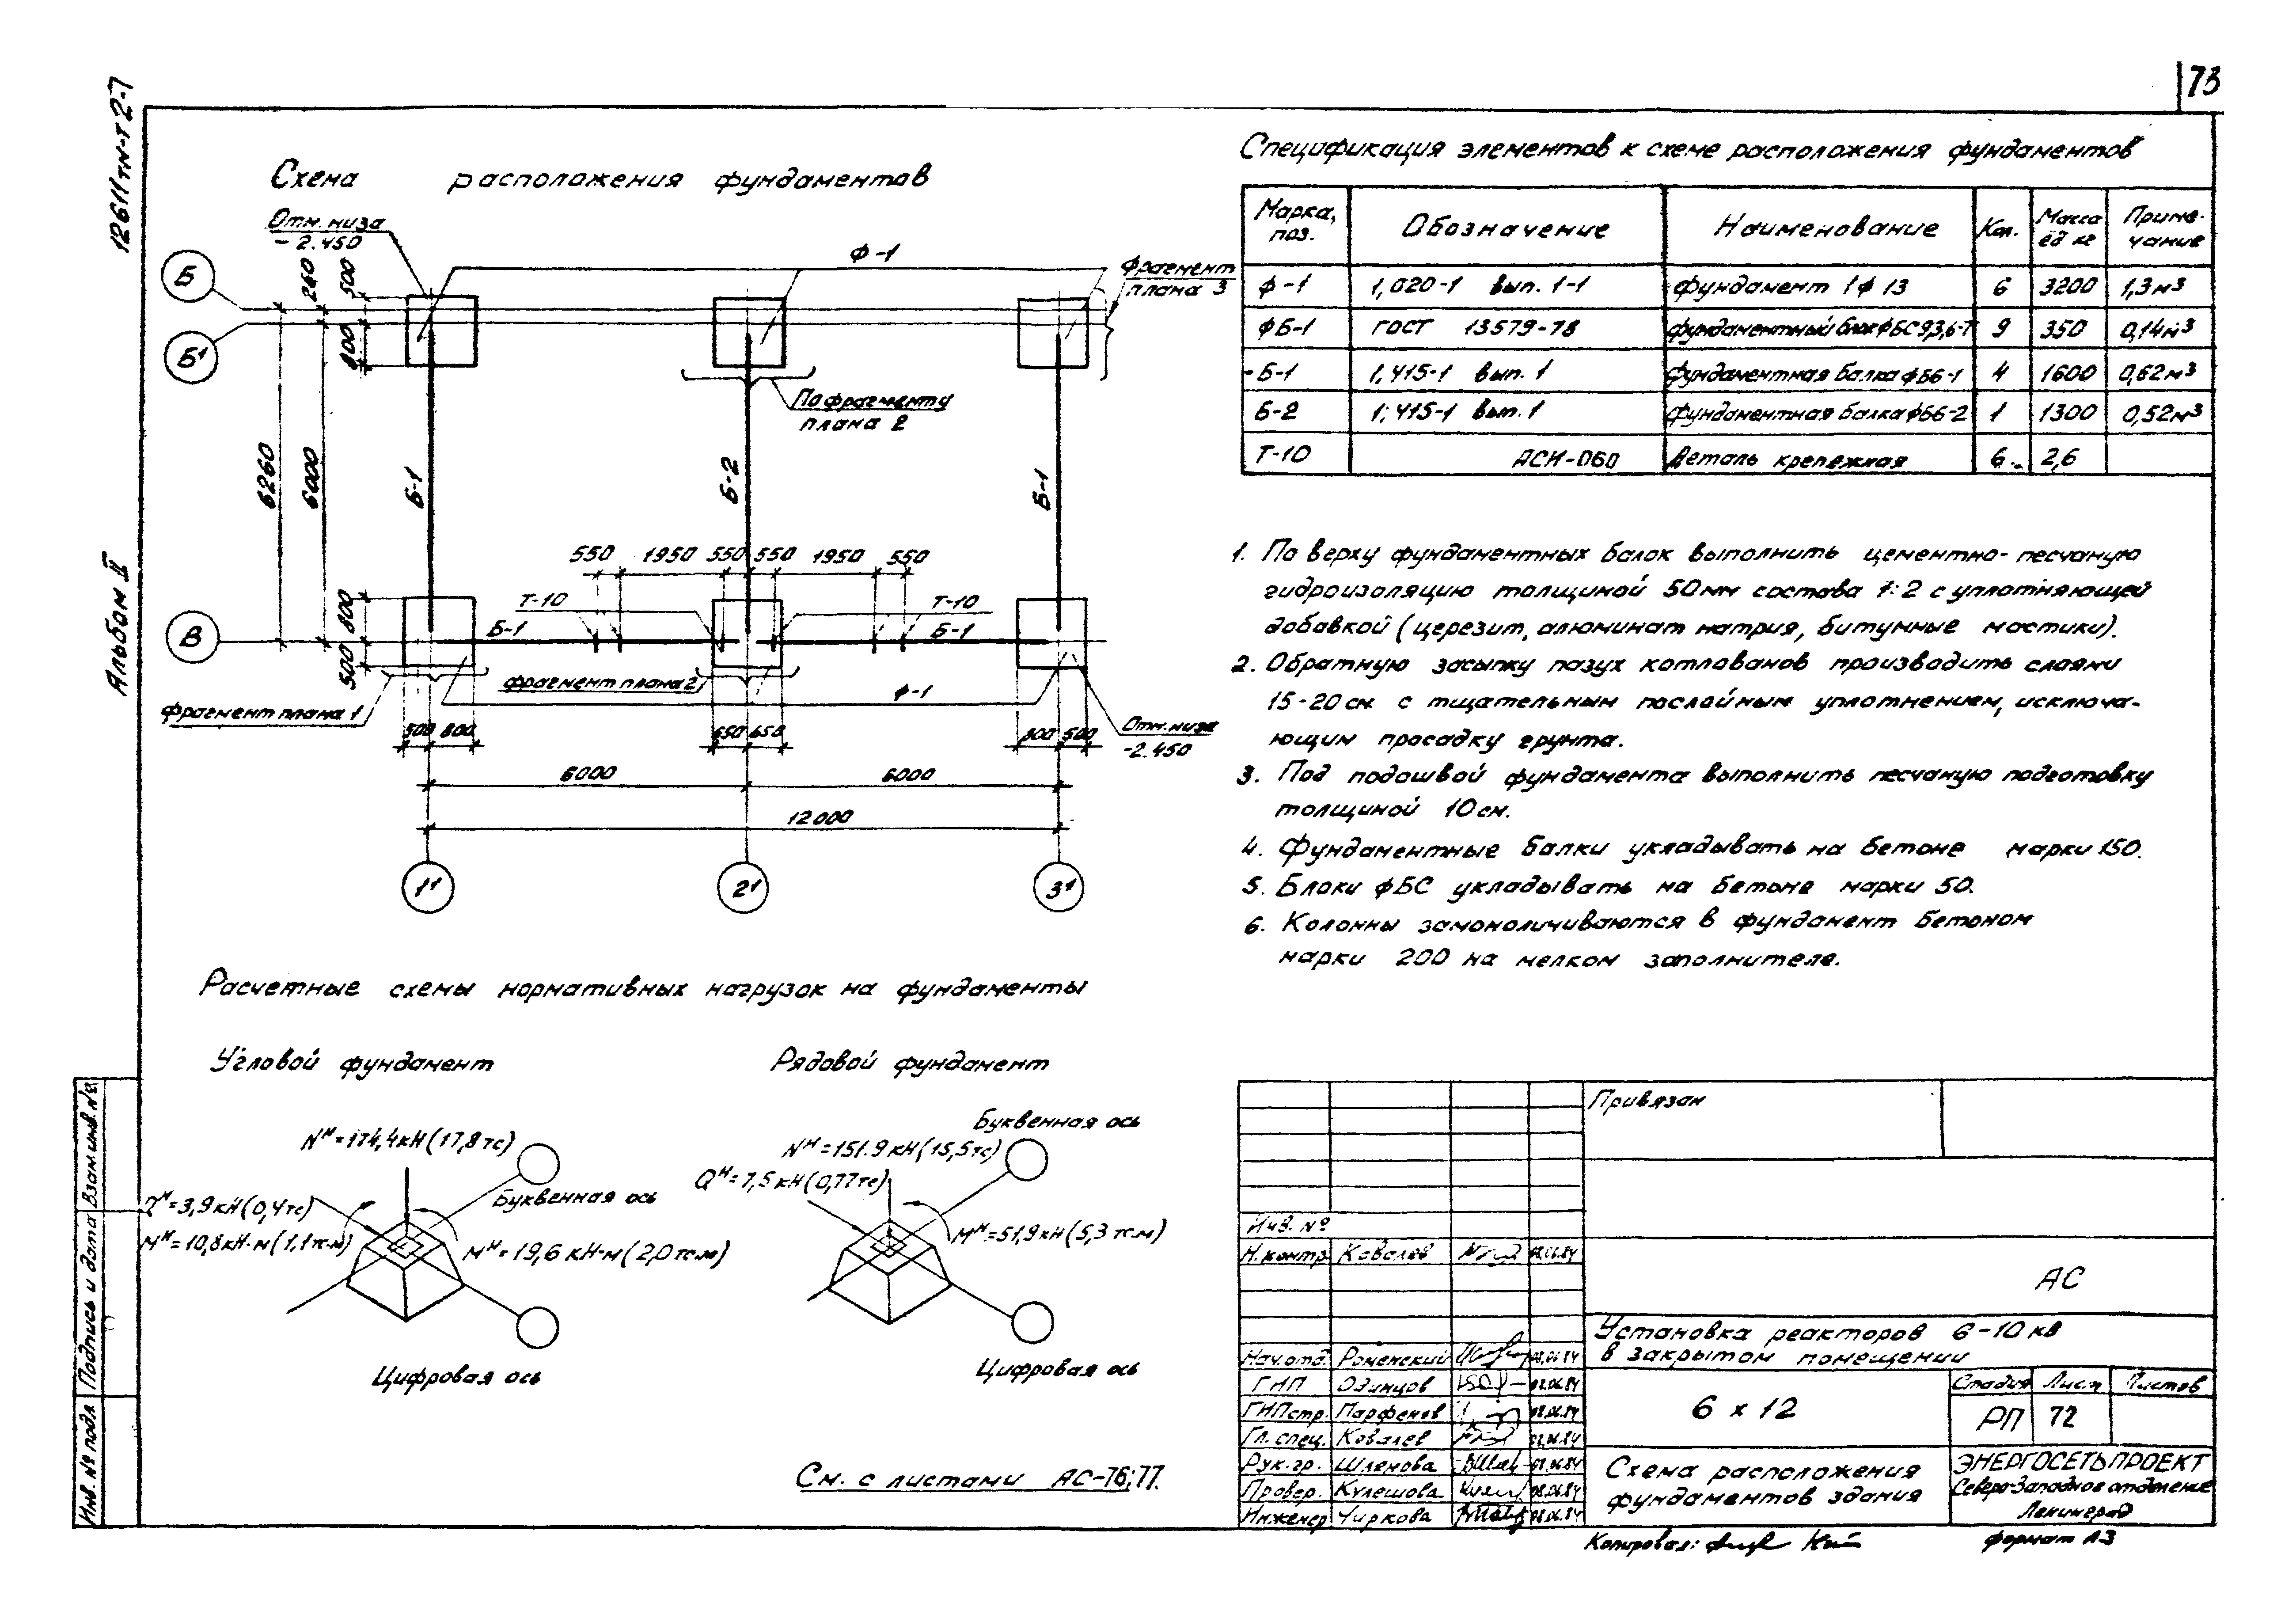 73
12611тм-т2-7
Альбом II
Схема расположения фундаментов
Отм. низа
-2.450
Б
Б¹
В
260
500
800
6260
6000
800
500
Ф-1
Фрагмент
плана 3
По фрагменту
плана 2
Б-1
Б-2
Б-1
550 1950 550 550 1950 550
Т-10
Т-10
Б-1
Б-1
Фрагмент плана 1
Фрагмент плана 2
Ф-1
Отм. низа
-2.450
500 800
650 650
800 500
6000
6000
12000
1¹
2¹
3¹
Спецификация элементов к схеме расположения фундаментов
Марка, поз. Обозначение Наименование Кол. Масса ед кг Примечание
Ф-1 1,020-1 вып. 1-1 Фундамент 1Ф13 6 3200 1,3м³
ФБ-1 ГОСТ 13579-78 Фундаментный блок ФБС 9.3,6-Т 9 350 0,14м³
Б-1 1,415-1 вып. 1 Фундаментная балка ФБ6-1 4 1600 0,62м³
Б-2 1,415-1 вып. 1 Фундаментная балка ФБ6-2 1 1300 0,52м³
Т-10 АСИ-060 Деталь крепежная 6 2,6
1. По верху фундаментных балок выполнить цементно-песчаную
гидроизоляцию толщиной 50мм состава 1:2 с уплотняющей
добавкой (церезит, алюминат натрия, битумные мастики).
2. Обратную засыпку пазух котлованов производить слоями
15-20см с тщательным послойным уплотнением, исключа-
ющим просадку грунта.
3. Под подошвой фундамента выполнить песчаную подготовку
толщиной 10см.
4. Фундаментные балки укладывать на бетоне марки 150.
5. Блоки ФБС укладывать на бетоне марки 50.
6. Колонны замоноличиваются в фундамент бетоном
марки 200 на мелком заполнителе.
Расчетные схемы нормативных нагрузок на фундаменты
Угловой фундамент
Nᴴ=174,4кН(17,8тс)
Буквенная ось
Qᴴ=3,9кН(0,4тс)
Мᴴ=10,8кН·м(1,1тс·м)
Мᴴ=19,6кН·м(2,0тс·м)
Цифровая ось
Рядовой фундамент
Буквенная ось
Nᴴ=151.9кН(15,5тс)
Qᴴ=7,5кН(0,77тс)
Мᴴ=51,9кН(5,3тс.м)
Цифровая ось
См. с листами АС-76;77.
Привязан
Инв. №
Н.контр. Ковалев 08.06.84
АС
Установка реакторов 6-10кВ
в закрытом помещении
Нач.отд. Роменский 08.06.84
ГИП Одинцов 08.06.84
ГИПстр. Парфенов 08.06.84
Гл. спец. Ковалев 08.06.84
Рук.гр. Шленова 08.06.84
Провер. Кулешова 08.06.84
Инженер Чиркова 08.06.84
6 х 12
Стадия Лист Листов
РП 72
Схема расположения
фундаментов здания
ЭНЕРГОСЕТЬПРОЕКТ
Северо-Западное отделение
Ленинград
Копировал:
Формат А3
Инв. № подл. Подпись и дата Взам.инв.№